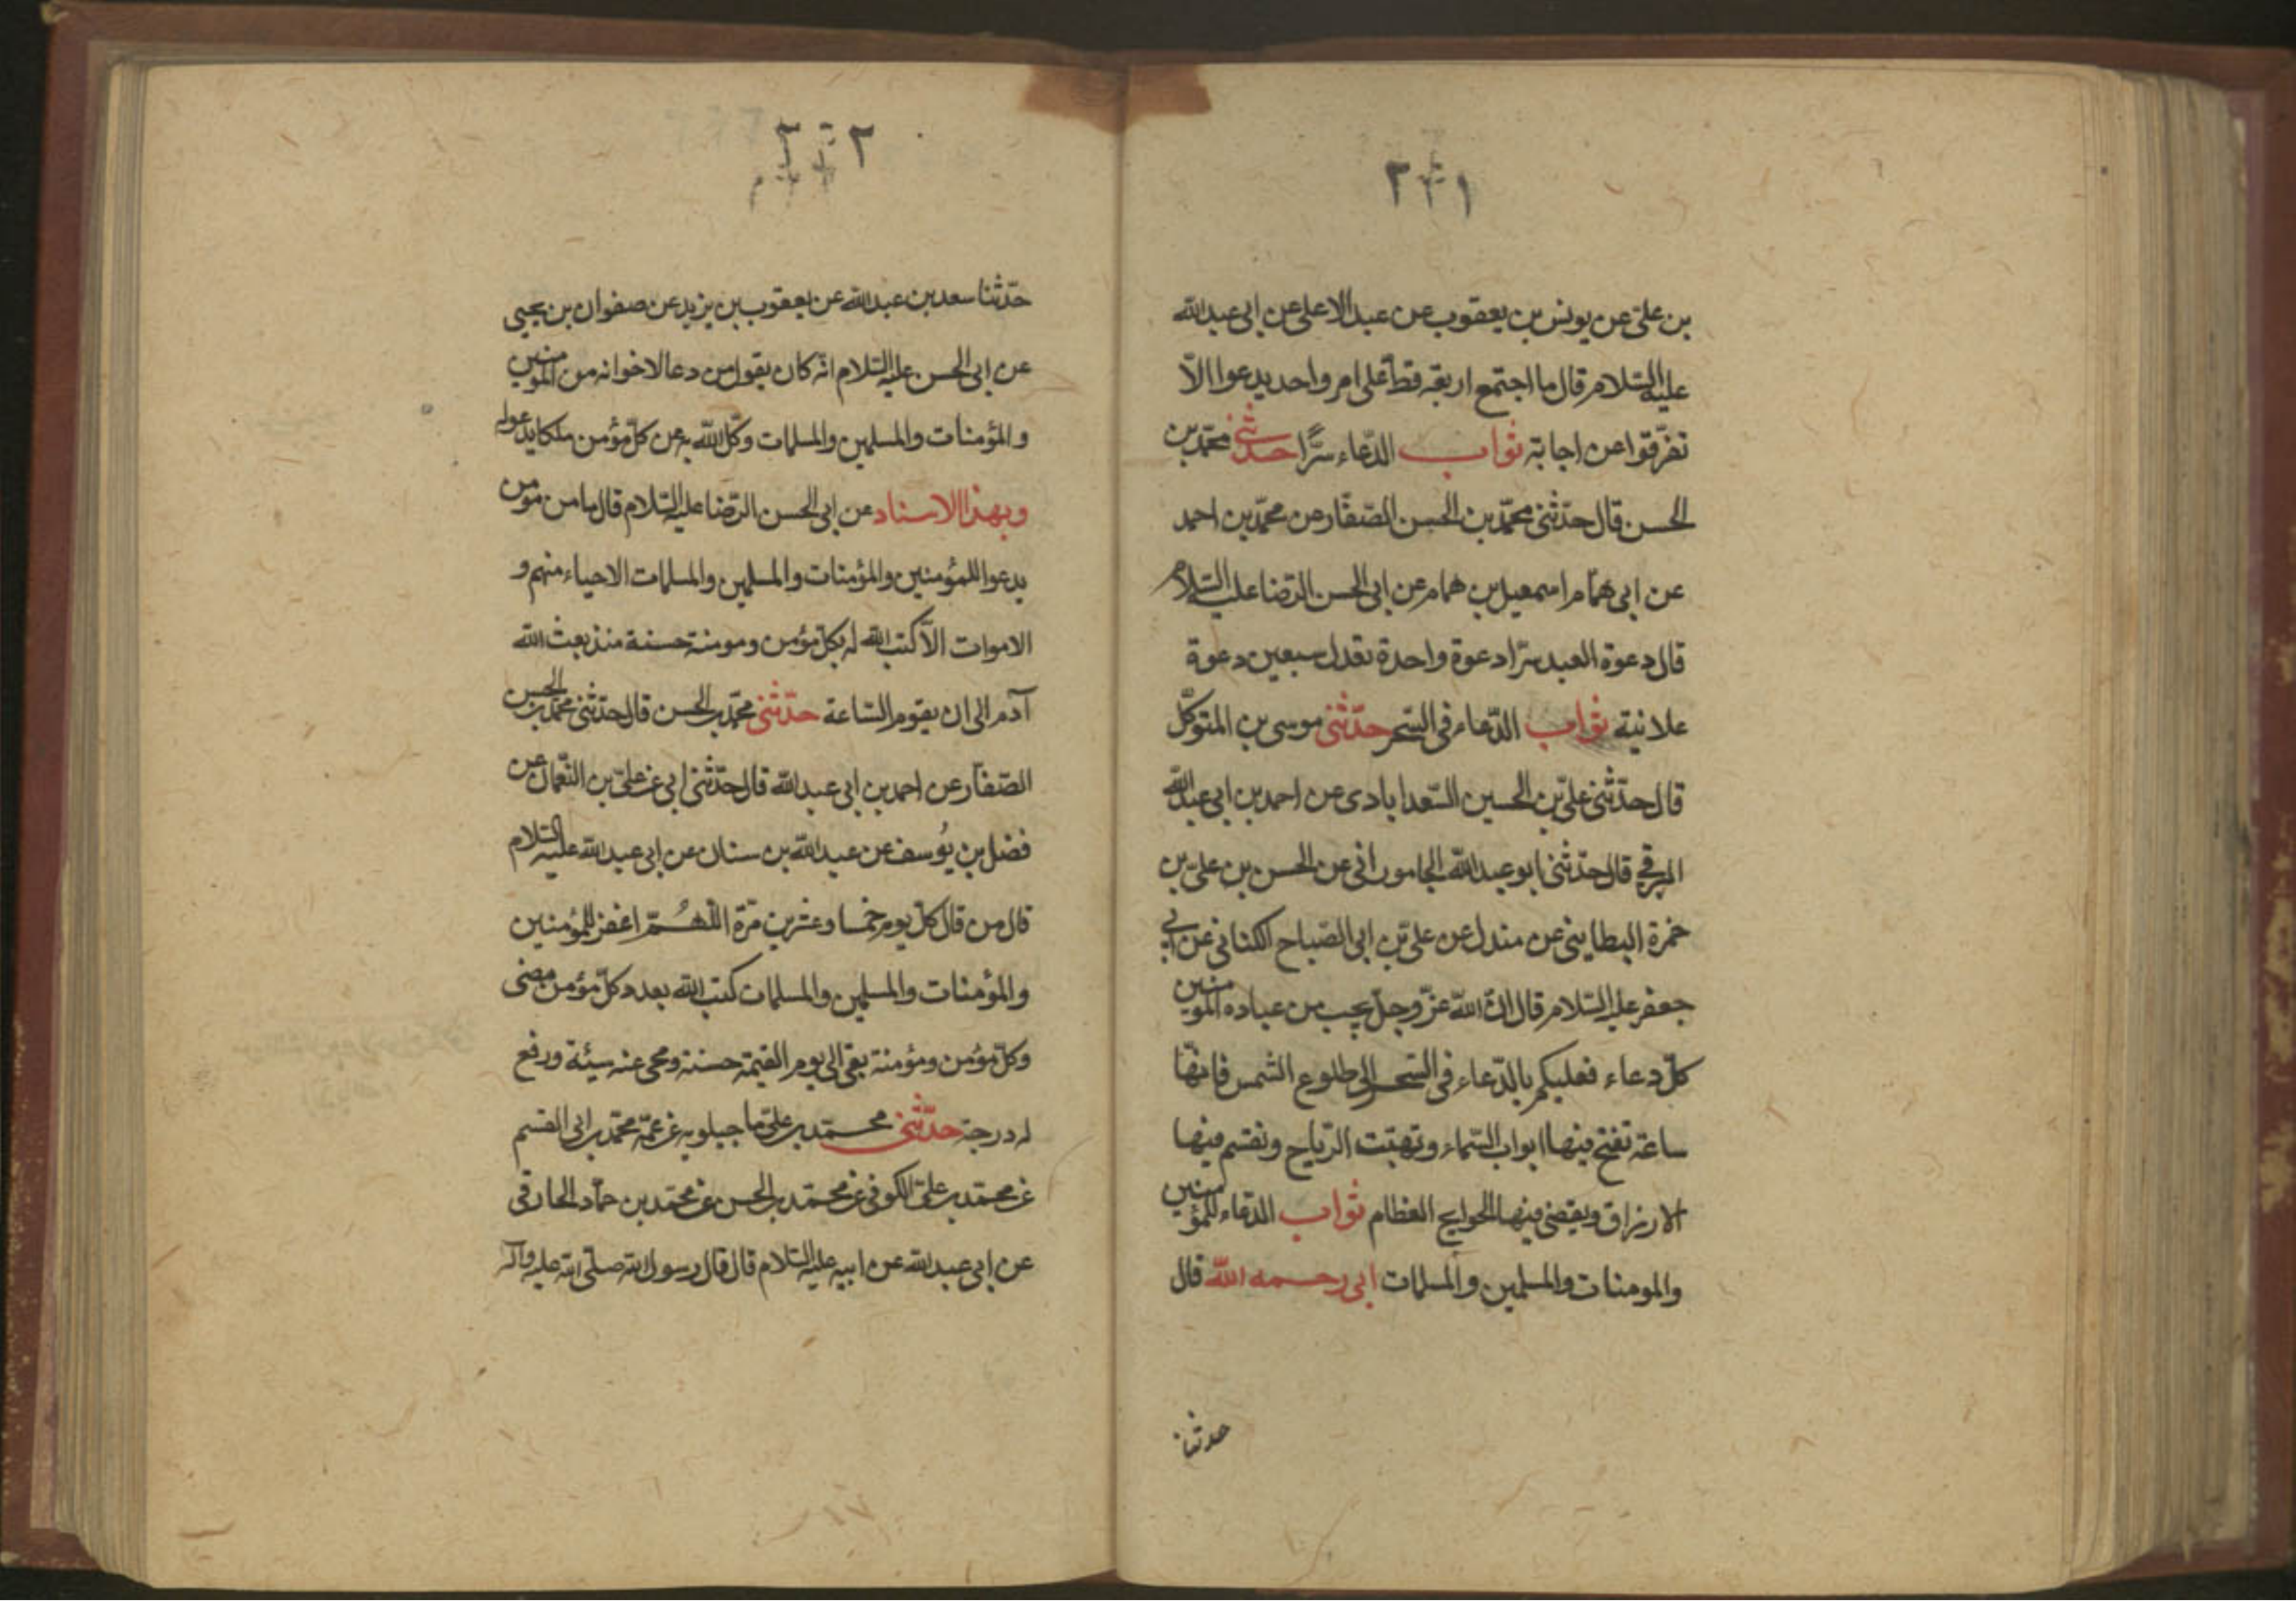 بن علىّ عن يونس بن يعقوب عن عبد الاعلى عن ابى عبد الله
عليه السّلام قال ما اجتمع اربعة قطّ على امر واحد يدعوا الاّ
تفرّقوا عن اجابة ثواب الدّعاء سرًّا حدّثنى محمّد بن
الحسن قال حدّثنى محمّد بن الحسن الصّفّار عن محمّد بن احمد
عن ابى همّام اسمعيل بن همام عن ابى الحسن الرّضا عليه السّلام
قال دعوة العبد سرّا دعوة واحدة تعدل سبعين دعوة
علانية ثواب الدّعاء فى السّحر حدّثنى موسى بن المتوكّل
قال حدّثنى علىّ بن الحسين السّعدابادى عن احمد بن ابى عبد الله
البرقى قال حدّثنى ابو عبد الله الجامورانى عن الحسن بن علىّ بن
حمزة البطاينى عن مندل عن علىّ بن ابى الصّباح الكنانى عن ابى
جعفر عليه السّلام قال انّ الله عزّ وجلّ يحب من عباده المؤمنين
كلّ دعاء فعليكم بالدّعاء فى السّحر الى طلوع الشمس فانّها
ساعة تفتح فيها ابواب السّماء وتهبّت الرّياح وتقسم فيها
الارزاق ويقضى فيها الحوايج العظام ثواب الدّعاء للمؤمنين
والمومنات والمسلمين والمسلمات ابى رحمه الله قال
حدثنا
٢٢٢
حدّثنا سعد بن عبد الله عن يعقوب بن يزيد عن صفوان بن يحيى
عن ابى الحسن عليه السّلام انّه كان يقول من دعا لاخوانه من المؤمنين
والمؤمنات والمسلمين والمسلمات وكّل الله به عن كلّ مؤمن ملكا يدعوا له
وبهذا الاسناد عن ابى الحسن الرّضا عليه السّلام قال ما من مؤمن
يدعوا للمؤمنين والمؤمنات والمسلمين والمسلمات الاحياء منهم و
الاموات الاّ كتب الله له بكلّ مؤمن ومومنة حسنة منذ بعث الله
آدم الى ان يقوم السّاعة حدّثنى محمّد بن الحسن قال حدّثنى محمّد بن الحسن
الصّفّار عن احمد بن ابى عبد الله قال حدّثنى ابى عن علىّ بن النّعمان عن
فضل بن يُوسف عن عبد الله بن سنان عن ابى عبد الله عليه السّلام
قال من قال كلّ يوم خمسا وعشرين مرّة اللّهُمّ اغفر للمؤمنين
والمؤمنات والمسلمين والمسلمات كتب الله بعدد كلّ مؤمن مضى
وكلّ مؤمن ومؤمنة بقى الى يوم القيمة حسنة ومحى عنه سيئة ورفع
له درجة حدّثنى محمّد بن علىّ ماجيلويه عن عمّه محمّد بن ابى القسم
عن محمّد بن علىّ الكوفى عن محمّد بن الحسن عن محمّد بن حمّاد الحارقى
عن ابى عبد الله عن ابيه عليه السّلام قال قال رسول الله صلّى الله عليه وآله